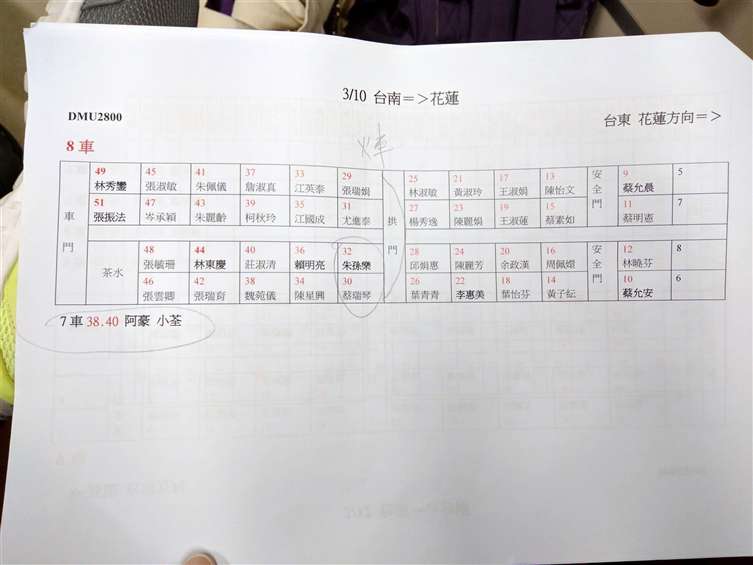 3/10 台南＝＞花蓮
DMU2800
台東 花蓮方向＝＞
8 車
49 45 41 37 33 29 25 21 17 13 安全門 9 5
林秀鑾 張淑敏 朱佩儀 詹淑真 江英泰 張瑞娟 林淑敏 黃淑玲 王淑娟 陳怡文 蔡允晨
車門 拱門
51 47 43 39 35 31 27 23 19 15 11 7
張振法 岑承穎 朱麗齡 柯秋玲 江國成 尤進泰 楊秀逸 陳麗娟 王淑蓮 蔡素如 蔡明憲
茶水 48 44 40 36 32 28 24 20 16 安全門 12 8
張毓珊 林東慶 莊淑清 賴明亮 朱孫樂 邱娟惠 陳麗芳 余政漢 周佩嬑 林曉芬
46 42 38 34 30 26 22 18 14 10 6
張雲卿 張瑞育 魏菀儀 陳星興 蔡瑞琴 葉青青 李惠美 葉怡芬 黃子紜 蔡允安
7 車 38.40 阿豪 小荃